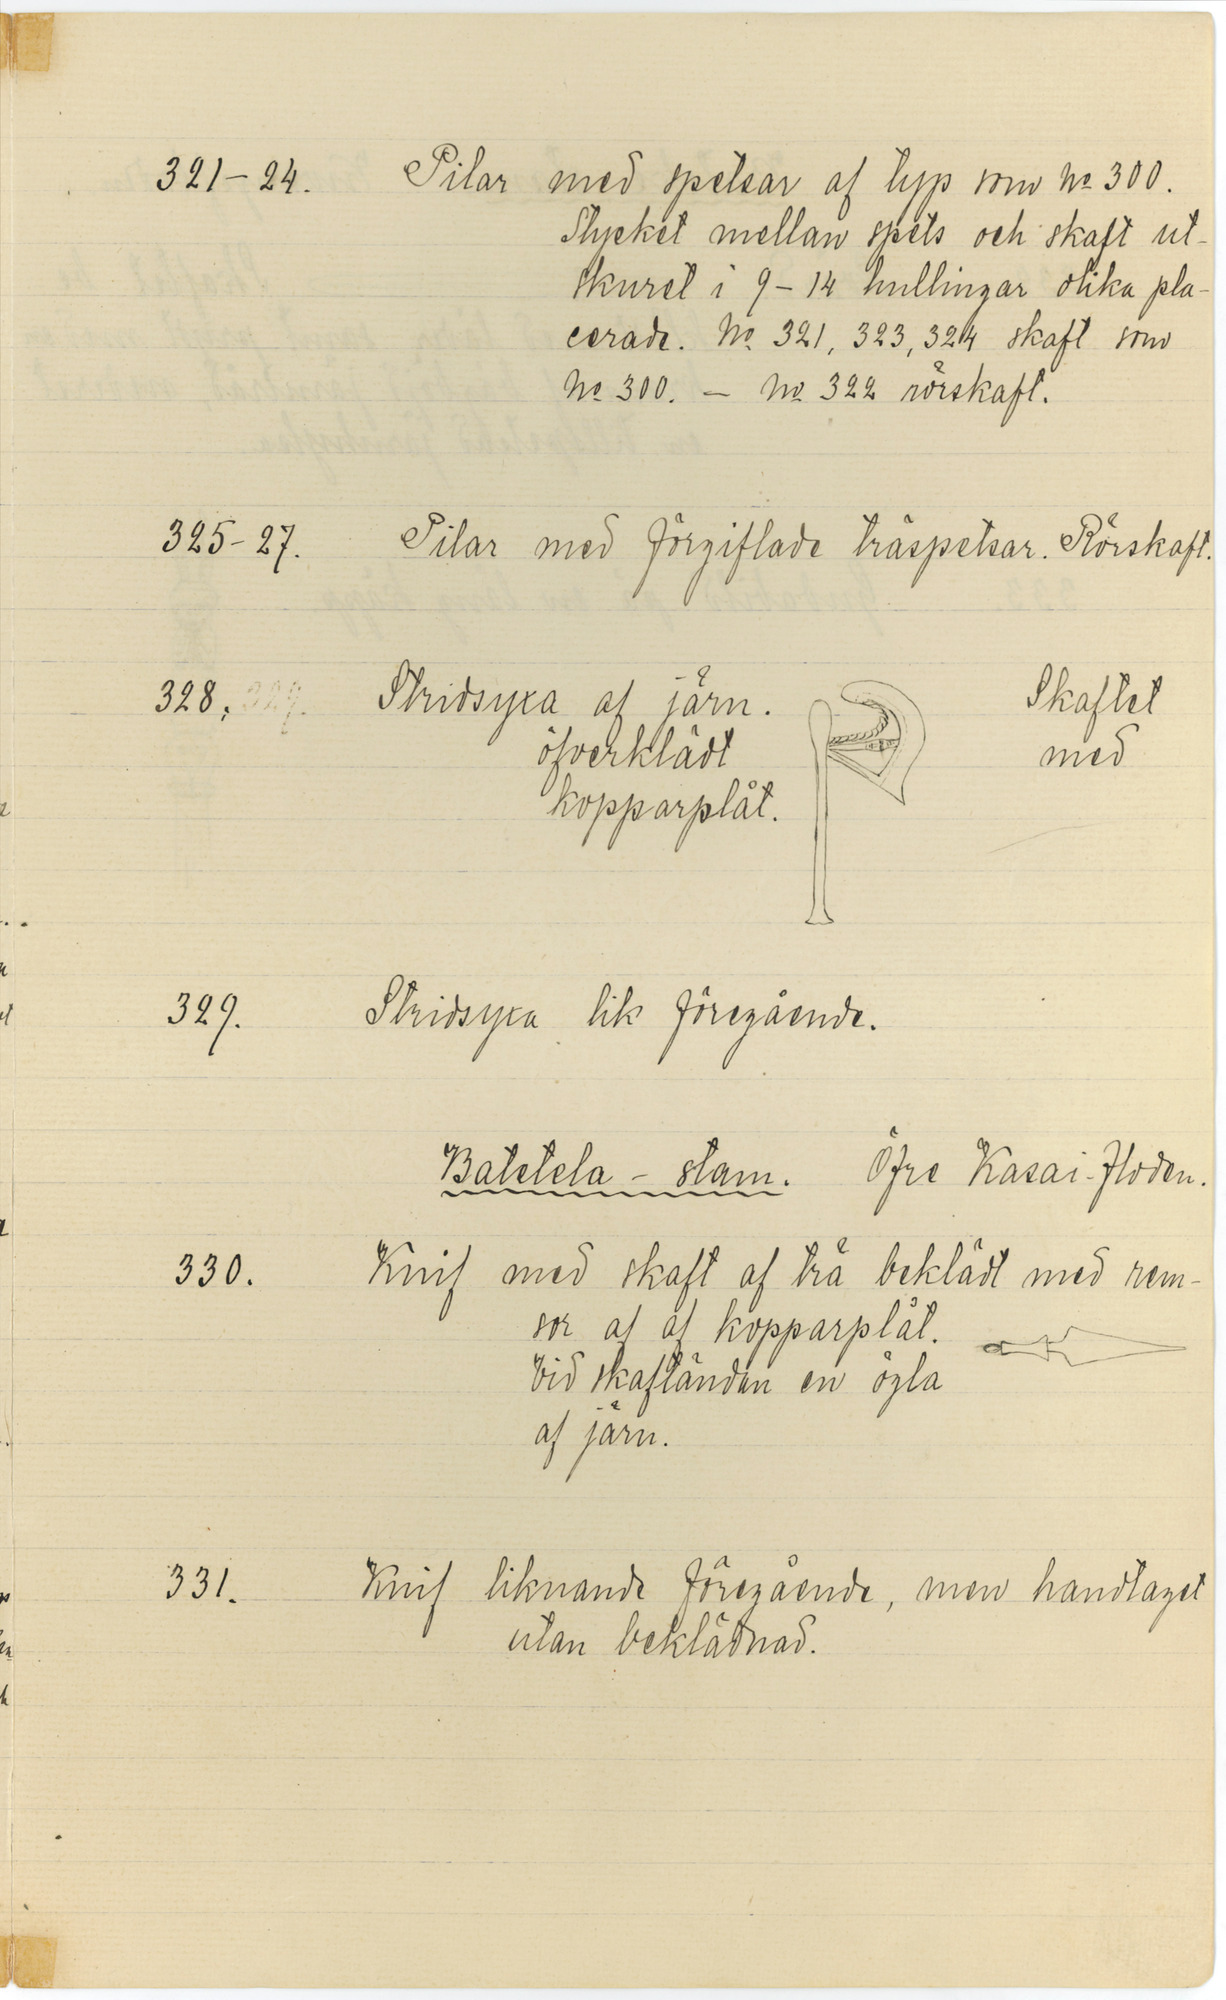 321-24. Pilar med spetsar af typ som No 300.
Stycket mellan spets och skaft ut-
skuret i 9-14 hullingar olika pla-
cerade. No 321, 323, 324 skaft som
No 300. - No 322 rörskaft.
325-27. Pilar med förgiftade träspetsar. Rörskaft.
328, 329. Stridsyxa af järn. Skaftet
öfverklädt med
kopparplåt.
329. Stridsyxa lik föregående.
Batetela - stam. Öfre Kasai-floden.
330. Knif med skaft af trä beklädt med rem-
sor af af kopparplåt.
Vid skaftändan en ögla
af järn.
331. Knif liknande föregående, men handtaget
utan beklädnad.